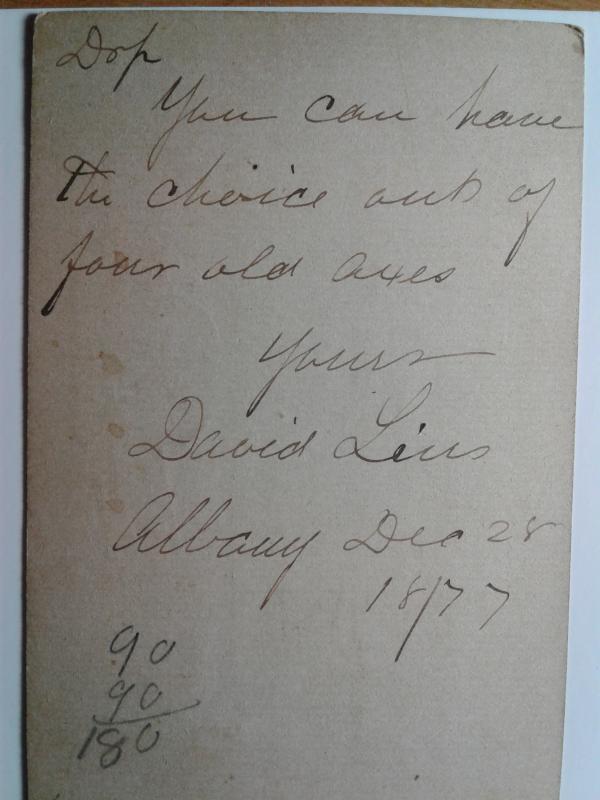 You can have
The choice out of
four old axes
Yours
David Lins
Albany Dec 28
1877
90
90
180